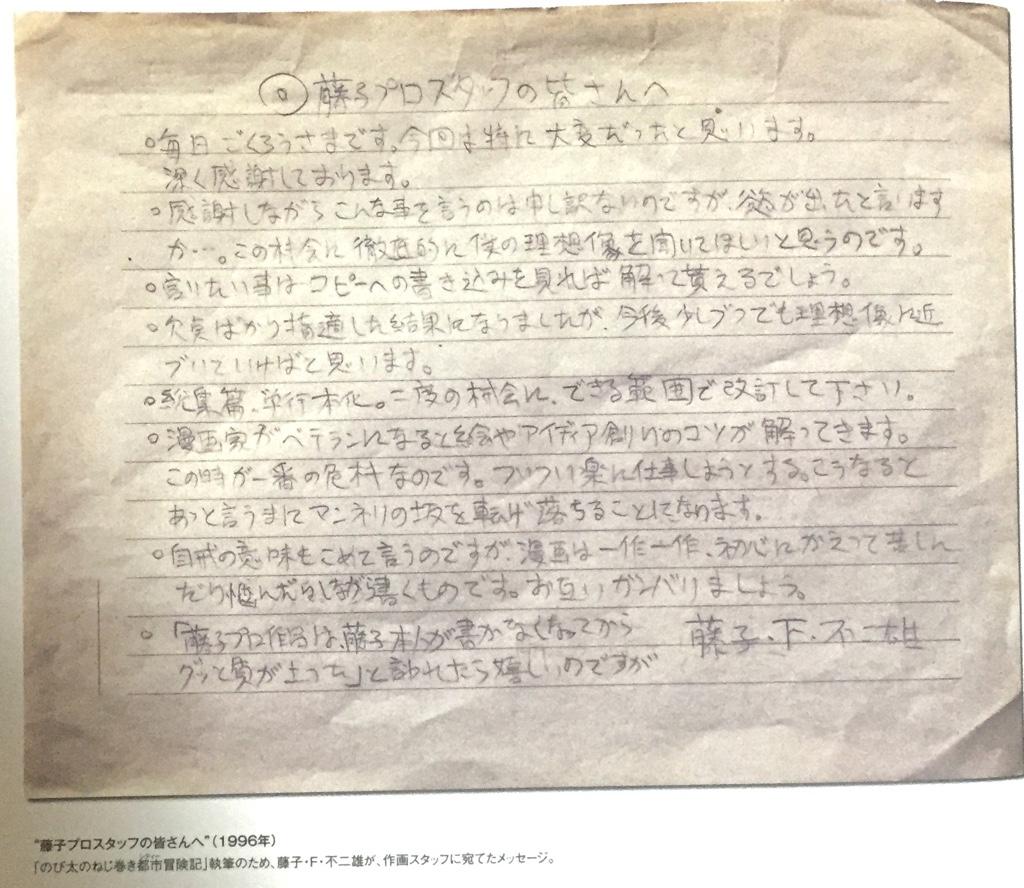 ◎藤子プロスタッフの皆さんへ
○毎日ごくろうさまです。今回は特に大変だったと思います。
深く感謝しております。
○感謝しながらこんな事を言うのは申し訳ないのですが、慾が出たと言います
か…。この機会に徹底的に僕の理想像を聞いてほしいと思うのです。
○言いたい事はコピーへの書き込みを見れば解って貰えるでしょう。
○欠点ばかり指適した結果になりましたが、今後少しづつでも理想像に近
づいていければと思います。
○総集篇、単行本化。二度の機会に、できる範囲で改訂して下さい。
○漫画家がベテランになると絵やアイディア創りのコツが解ってきます。
この時が一番の危機なのです。ついつい楽に仕事しようとする。こうなると
あっと言うまにマンネリの坂を転げ落ちることになります。
○自戒の意味もこめて言うのですが、漫画は一作一作、初心にかえって苦しん
だり悩んだりしながら書くものです。お互いガンバリましょう。
○「藤子プロ作品は、藤子本人が書かなくなってから
グッと質が上った」と言われたら嬉しいのですが
藤子・F・不二雄
“藤子プロスタッフの皆さんへ”(1996年)
「のび太のねじ巻き都市冒険記」執筆のため、藤子・F・不二雄が、作画スタッフに宛てたメッセージ。